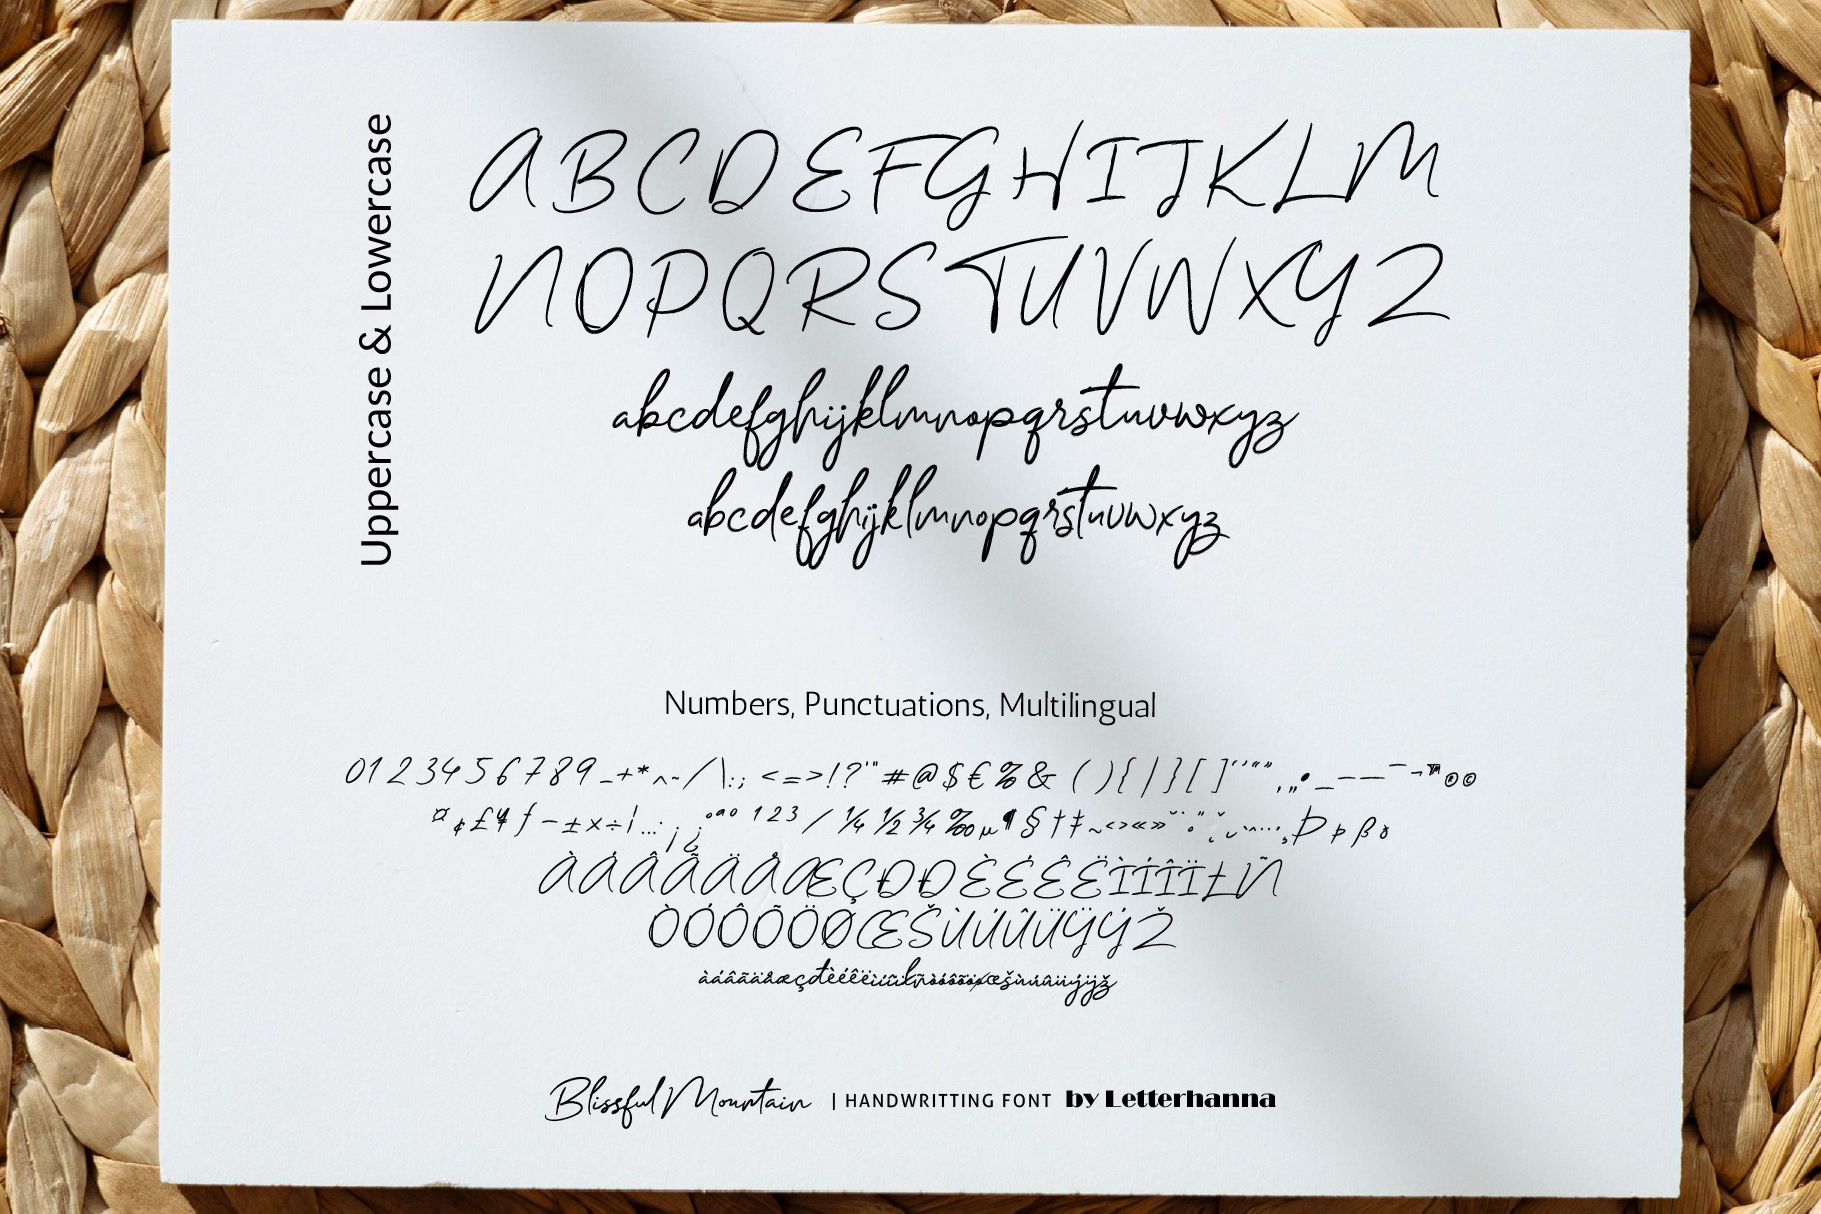 Uppercase & Lowercase
ABCDEFGHIJKLM
NOPQRSTUVWXYZ
abcdefghijklmnopqrstuvwxyz
abcdefghijklmnopqrstuvwxyz
Numbers, Punctuations, Multilingual
0123456789_-+*^~/\:; <=>!?'"#@$€%&(){|}[]‘’“”‚„•_–—¯¬™®©
¤¢£¥ƒ−±×÷¦…·¡¿ºªº123⁄¼½¾‰µ¶§†‡~‹›«»
ÀÁÂÃÄÅÆÇÐĐÈÉÊËÌÍÎÏŁÑ
ÒÓÔÕÖØŒŠÙÚÛÜŸÝŽ
àáâãäåæçđèéêëìíîïłñòóôõöøœšùúûüýÿž
Blissful Mountain | HANDWRITTING FONT by Letterhanna